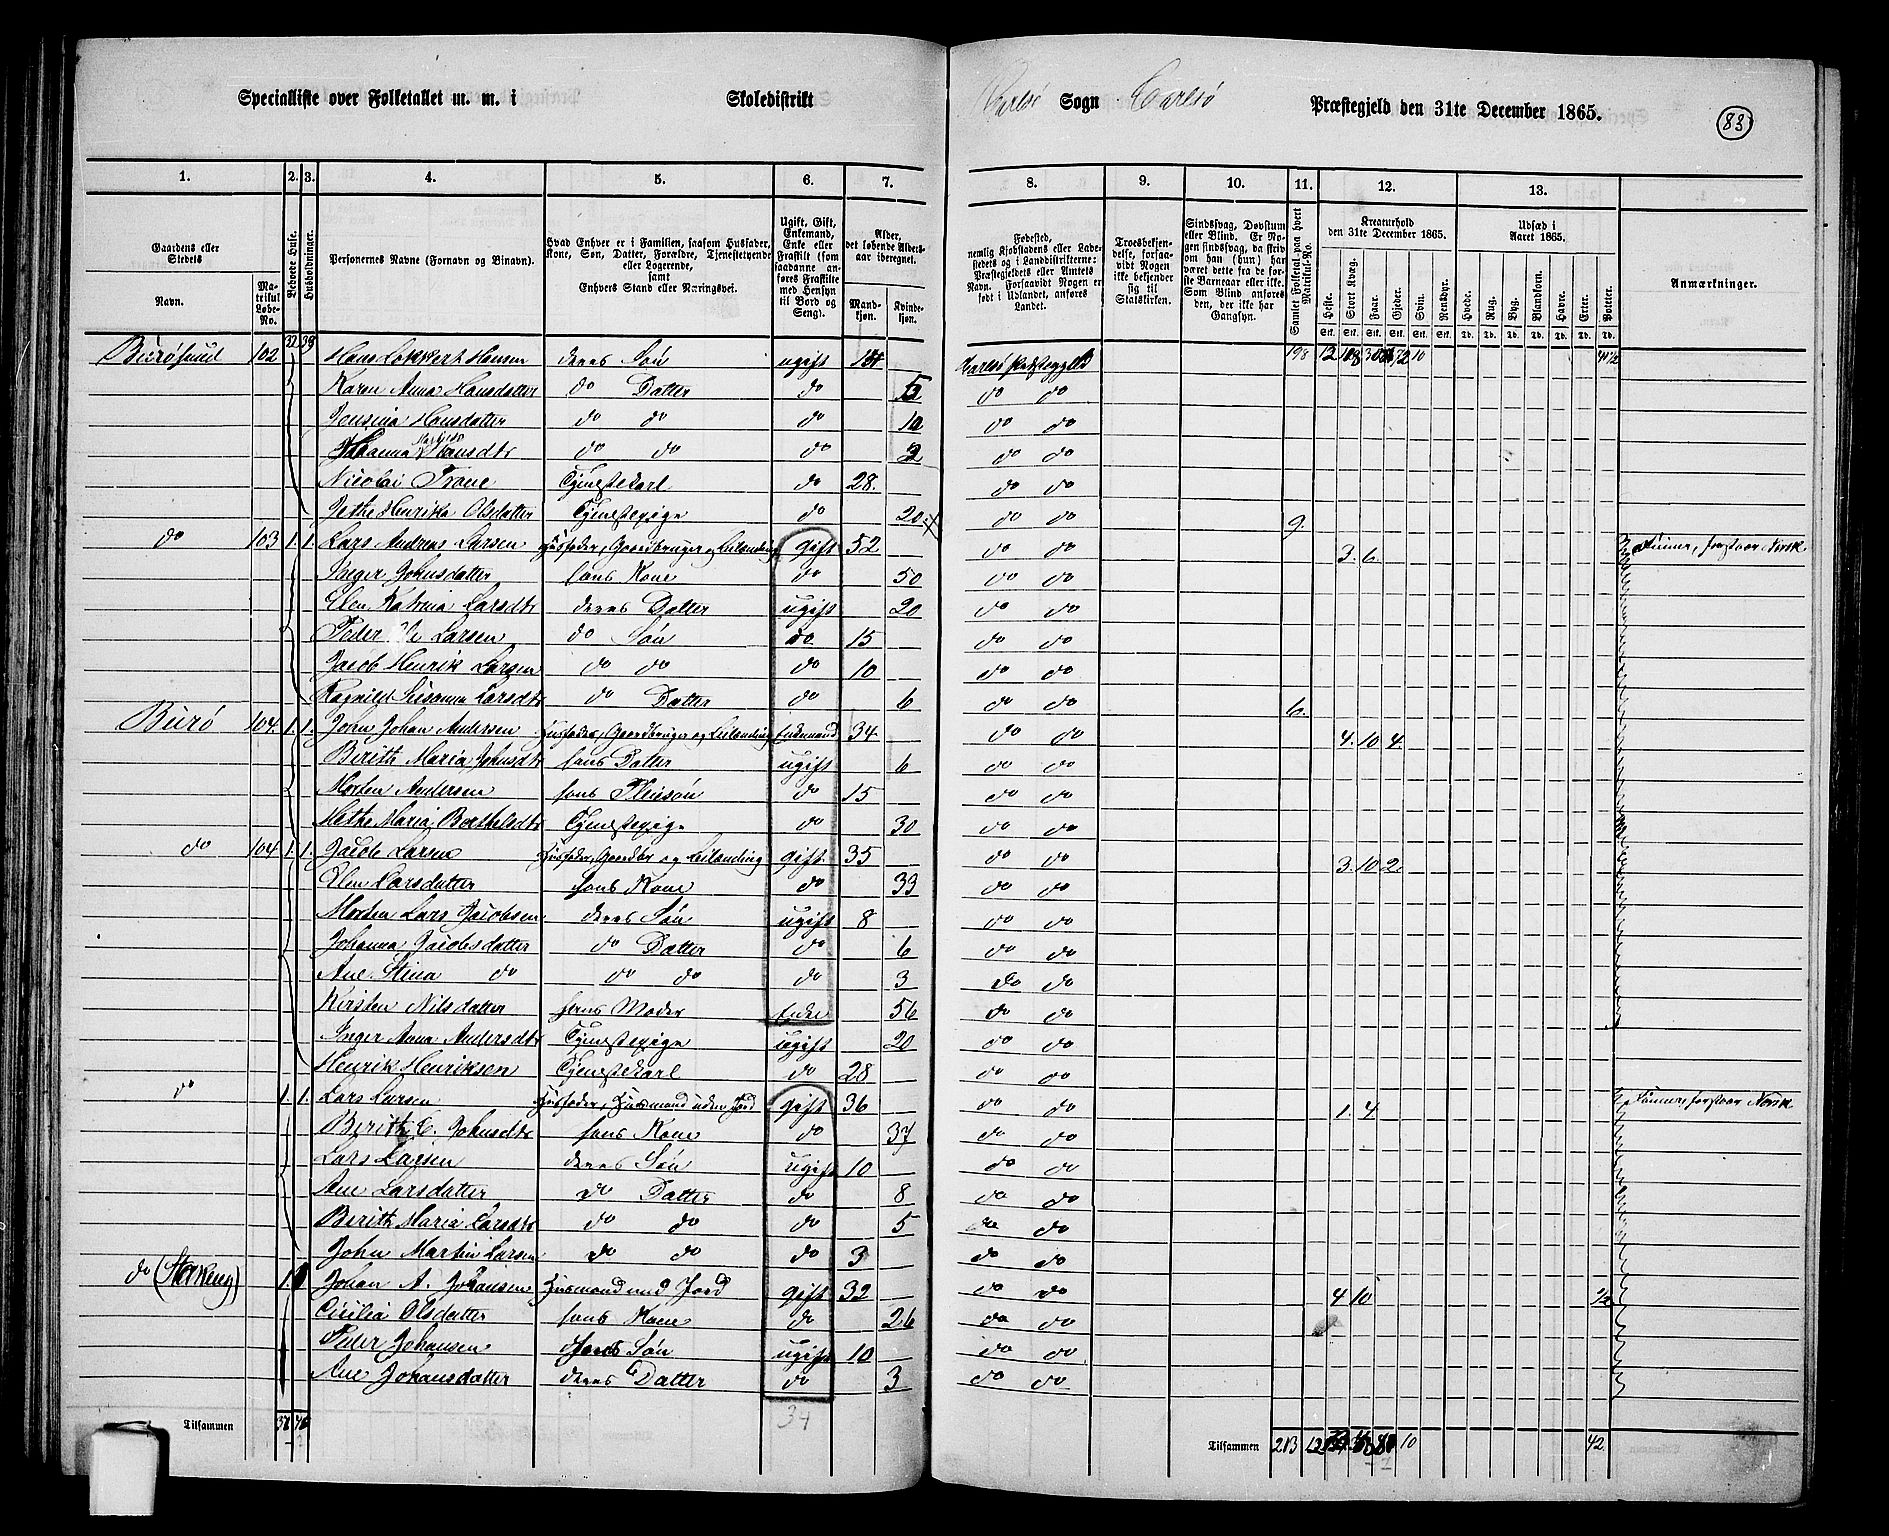 Specialliste over Folketallet m. m. i Skoledistrikt Karlsö Sogn Karlsö Præstegjeld den 31te December 1865. 83
1. 2. 3. 4. 5. 6. 7. 8. 9. 10. 11. 12. 13.
Gaardens eller Stedets
Navn.
Matrikul Løbe-No.
Beboede Huse.
Husholdninger.
Personernes Navne (Fornavn og Binavn).
Hvad Enhver er i Familien, saasom Husfader, Kone, Søn, Datter, Forældre, Tjenestetyende eller Logerende, samt Enhvers Stand eller Næringsvei.
Ugift, Gift, Enkemand, Enke eller Fraskilt (som saadanne anføres Fraskilte med Hensyn til Bord og Seng).
Alder, det løbende Aldersaar iberegnet.
Mandkjøn. Kvindekjøn.
Fødested, nemlig Kjøbstadens eller Ladestedets og i Landdistrikterne: Præstegjeldets eller Amtets Navn. Forsaavidt Nogen er født i Udlandet, anføres Landet.
Troesbekjendelse, forsaavidt Nogen ikke bekjender sig til Statskirken.
Sindssvag, Døvstum eller Blind. Er Nogen sindssvag, da skrives om han (hun) har været dette fra de første Barneaar eller ikke. Som Blind anføres den, der ikke har Gangsyn.
Samlet Folketal paa hvert Matrikul-No.
Kreaturhold den 31te December 1865.
Heste. Stort Kvæg. Faar. Gjeder. Svin. Rensdyr.
Udsæd i Aaret 1865.
Hvede. Rug. Byg. Blandkorn. Havre. Erter. Poteter.
Anmærkninger.
Burösund 102 32 39 Hans Lokkert Hansen deres Søn ugift Karlsö Præstegjeld 198 12 10
Karen Anna Hansdatter do Datter do do do
Jensina Hansdatter do do do do do
Johanna Hansdtr do do do do do
Nicolai Trane Tjenestekarl do 28. do do
Tjenestepige do 20 do do 9.
do 103 1. 1. Lars Andreas Larsen Husfader, Gaardbruger og Leilænding gift 52 do do 3. 6. Finner, forstaar Norsk
Inger Johnsdatter hans Kone do 50 do do
Elen Katrina Larsdtr deres Datter ugift 20 do do
Peder Ole Larsen do Søn do 15 do do
Jacob Henrik Larsen do do do 10 do do
Ragnild Susanna Larsdtr do Datter do 6 do do 6.
Burö 104. 1. 1. John Johan Andersen Husfader, Gaardbruger og Leilænding Enkemand 34 do do 4. 10 4.
Berith Maria Johnsdtr hans Datter ugift 6 do do
Morten Andersen hans Pleiesøn do 15 do do
Methe Maria Berthelsdtr Tjenestepige do 30 do do
do 104. 1. 1. Jacob Larsen Husfader, Gaardbr og Leilænding gift 35 do do 3. 10 2.
Elen Larsdatter hans Kone do 33 do do
Morten Lars Jacobsen deres Søn ugift 8 do do
Johanna Jacobsdatter do Datter do 6 do do
Ane Stina do do do do 3 do do
Kirsten Nilsdatter hans Moder Enke 56 do do
Inger Anna Andersdtr Tjenestepige ugift 20 do do
Henrik Henriksen Tjenestekarl do 28 do do
do 1. 1. Lars Larsen Husfader, Husmand uden Jord gift 36 do do 1. 4. Finner forstaar Norsk
Berith E. Johnsdtr hans Kone do 37 do do
Lars Larsen deres Søn ugift 10 do do
Ane Larsdatter do Datter do 8 do do
Berith Maria Larsdtr do do do 5 do do
John Martin Larsen do do do 3 do do
do 1. Johan A. Johansen Husmand med Jord gift 32 do do 4 10 1/2
Cicilia Olsdatter hans Kone do 26 do do
Peder Johansen hans Søn ugift 10 do do
Ane Johansdatter deres Datter do 3 do do
34
Tilsammen Tilsammen 213 12 10 42